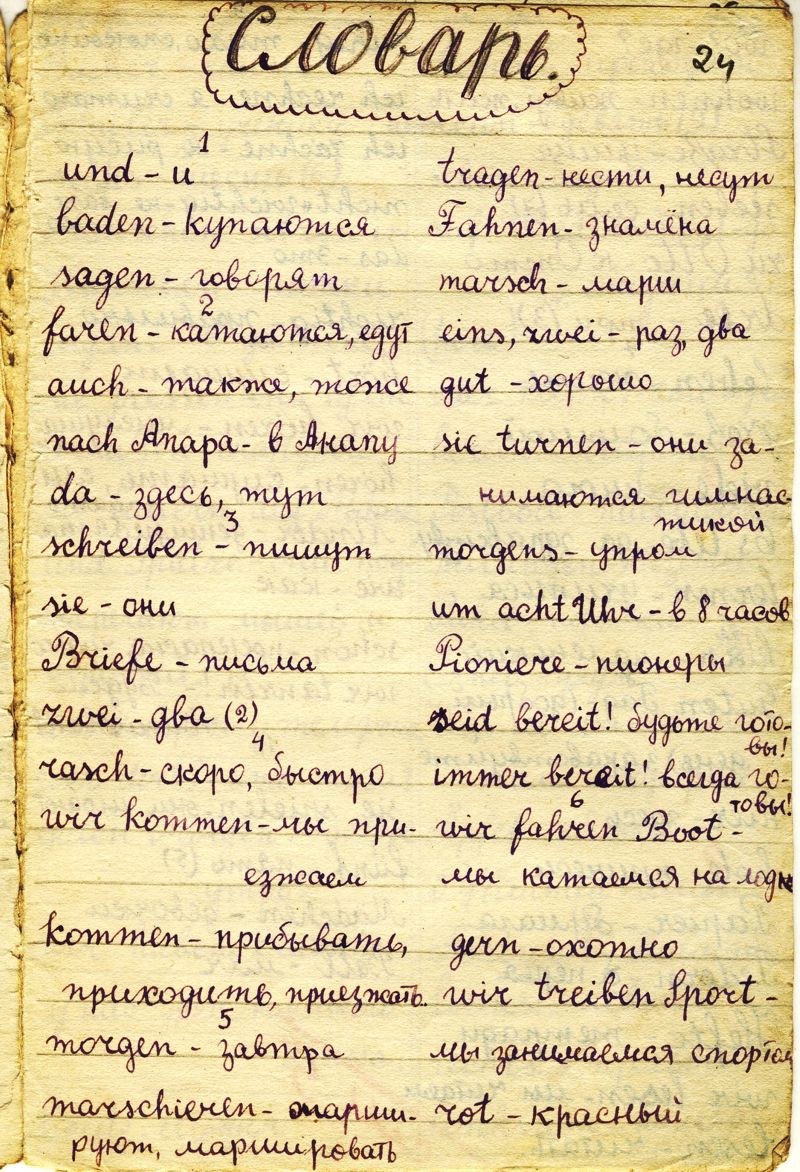 Словарь.
24
1
und - и
baden - купаются
sagen - говорят
2
faren - катаются, едут
auch - также, тоже
nach Anapa - в Анапу
da - здесь, тут
3
schreiben - пишут
sie - они
Briefe - письма
zwei - два (2)
4
rasch - скоро, быстро
wir kommen - мы при-
езжаем
kommen - прибывать,
приходить, приезжать.
5
morgen - завтра
marschieren - марши-
руют, маршировать
tragen - нести, несут
Fahnen - знамёна
marsch - марш
eins, zwei - раз, два
gut - хорошо
sie turnen - они за-
нимаются гимнас-
тикой
morgens - утром
um acht Uhr - в 8 часов
Pioniere - пионеры
seid bereit! будьте гото-
вы!
immer bereit! всегда го-
товы!
6
wir fahren Boot -
мы катаемся на лодке
gern - охотно
wir treiben Sport -
мы занимаемся спортом
rot - красный